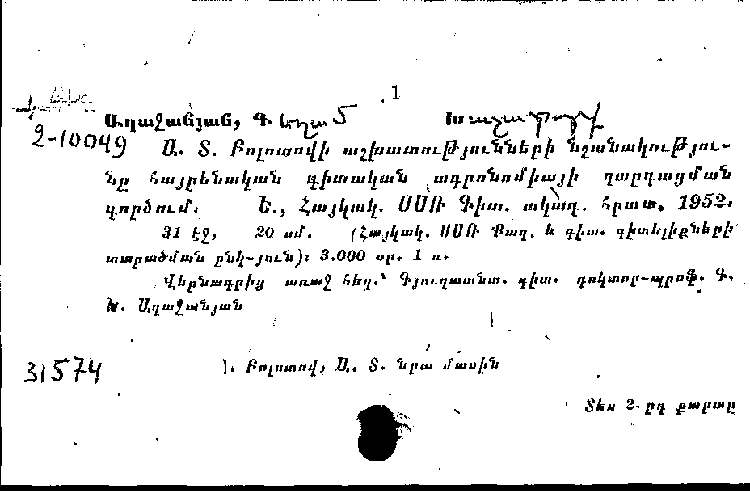 1
Աղաջանյան, Գ.
2-10049 Ա. Տ. Բոլոտովի աշխատությունների նշանակությու-
նը հայրենական գիտական ագրոնոմիայի զարգացման
գործում. Ե., Հայկակ. ՍՍՌ Գիտ. ակադ. հրատ. 1952.
31 էջ, 20 սմ. (Հայկակ. ՍՍՌ Քաղ. և գիտ. գիտելիքների
տարածման ընկ-յուն): 3.000 օր. 1 ռ.
Վերնագրից առաջ հեղ.՝ Գյուղատնտ. գիտ. դոկտոր-պրոֆ. Գ.
Խ. Աղաջանյան
31574 1. Բոլոտով, Ա. Տ. նրա մասին
Տես 2-րդ քարտը